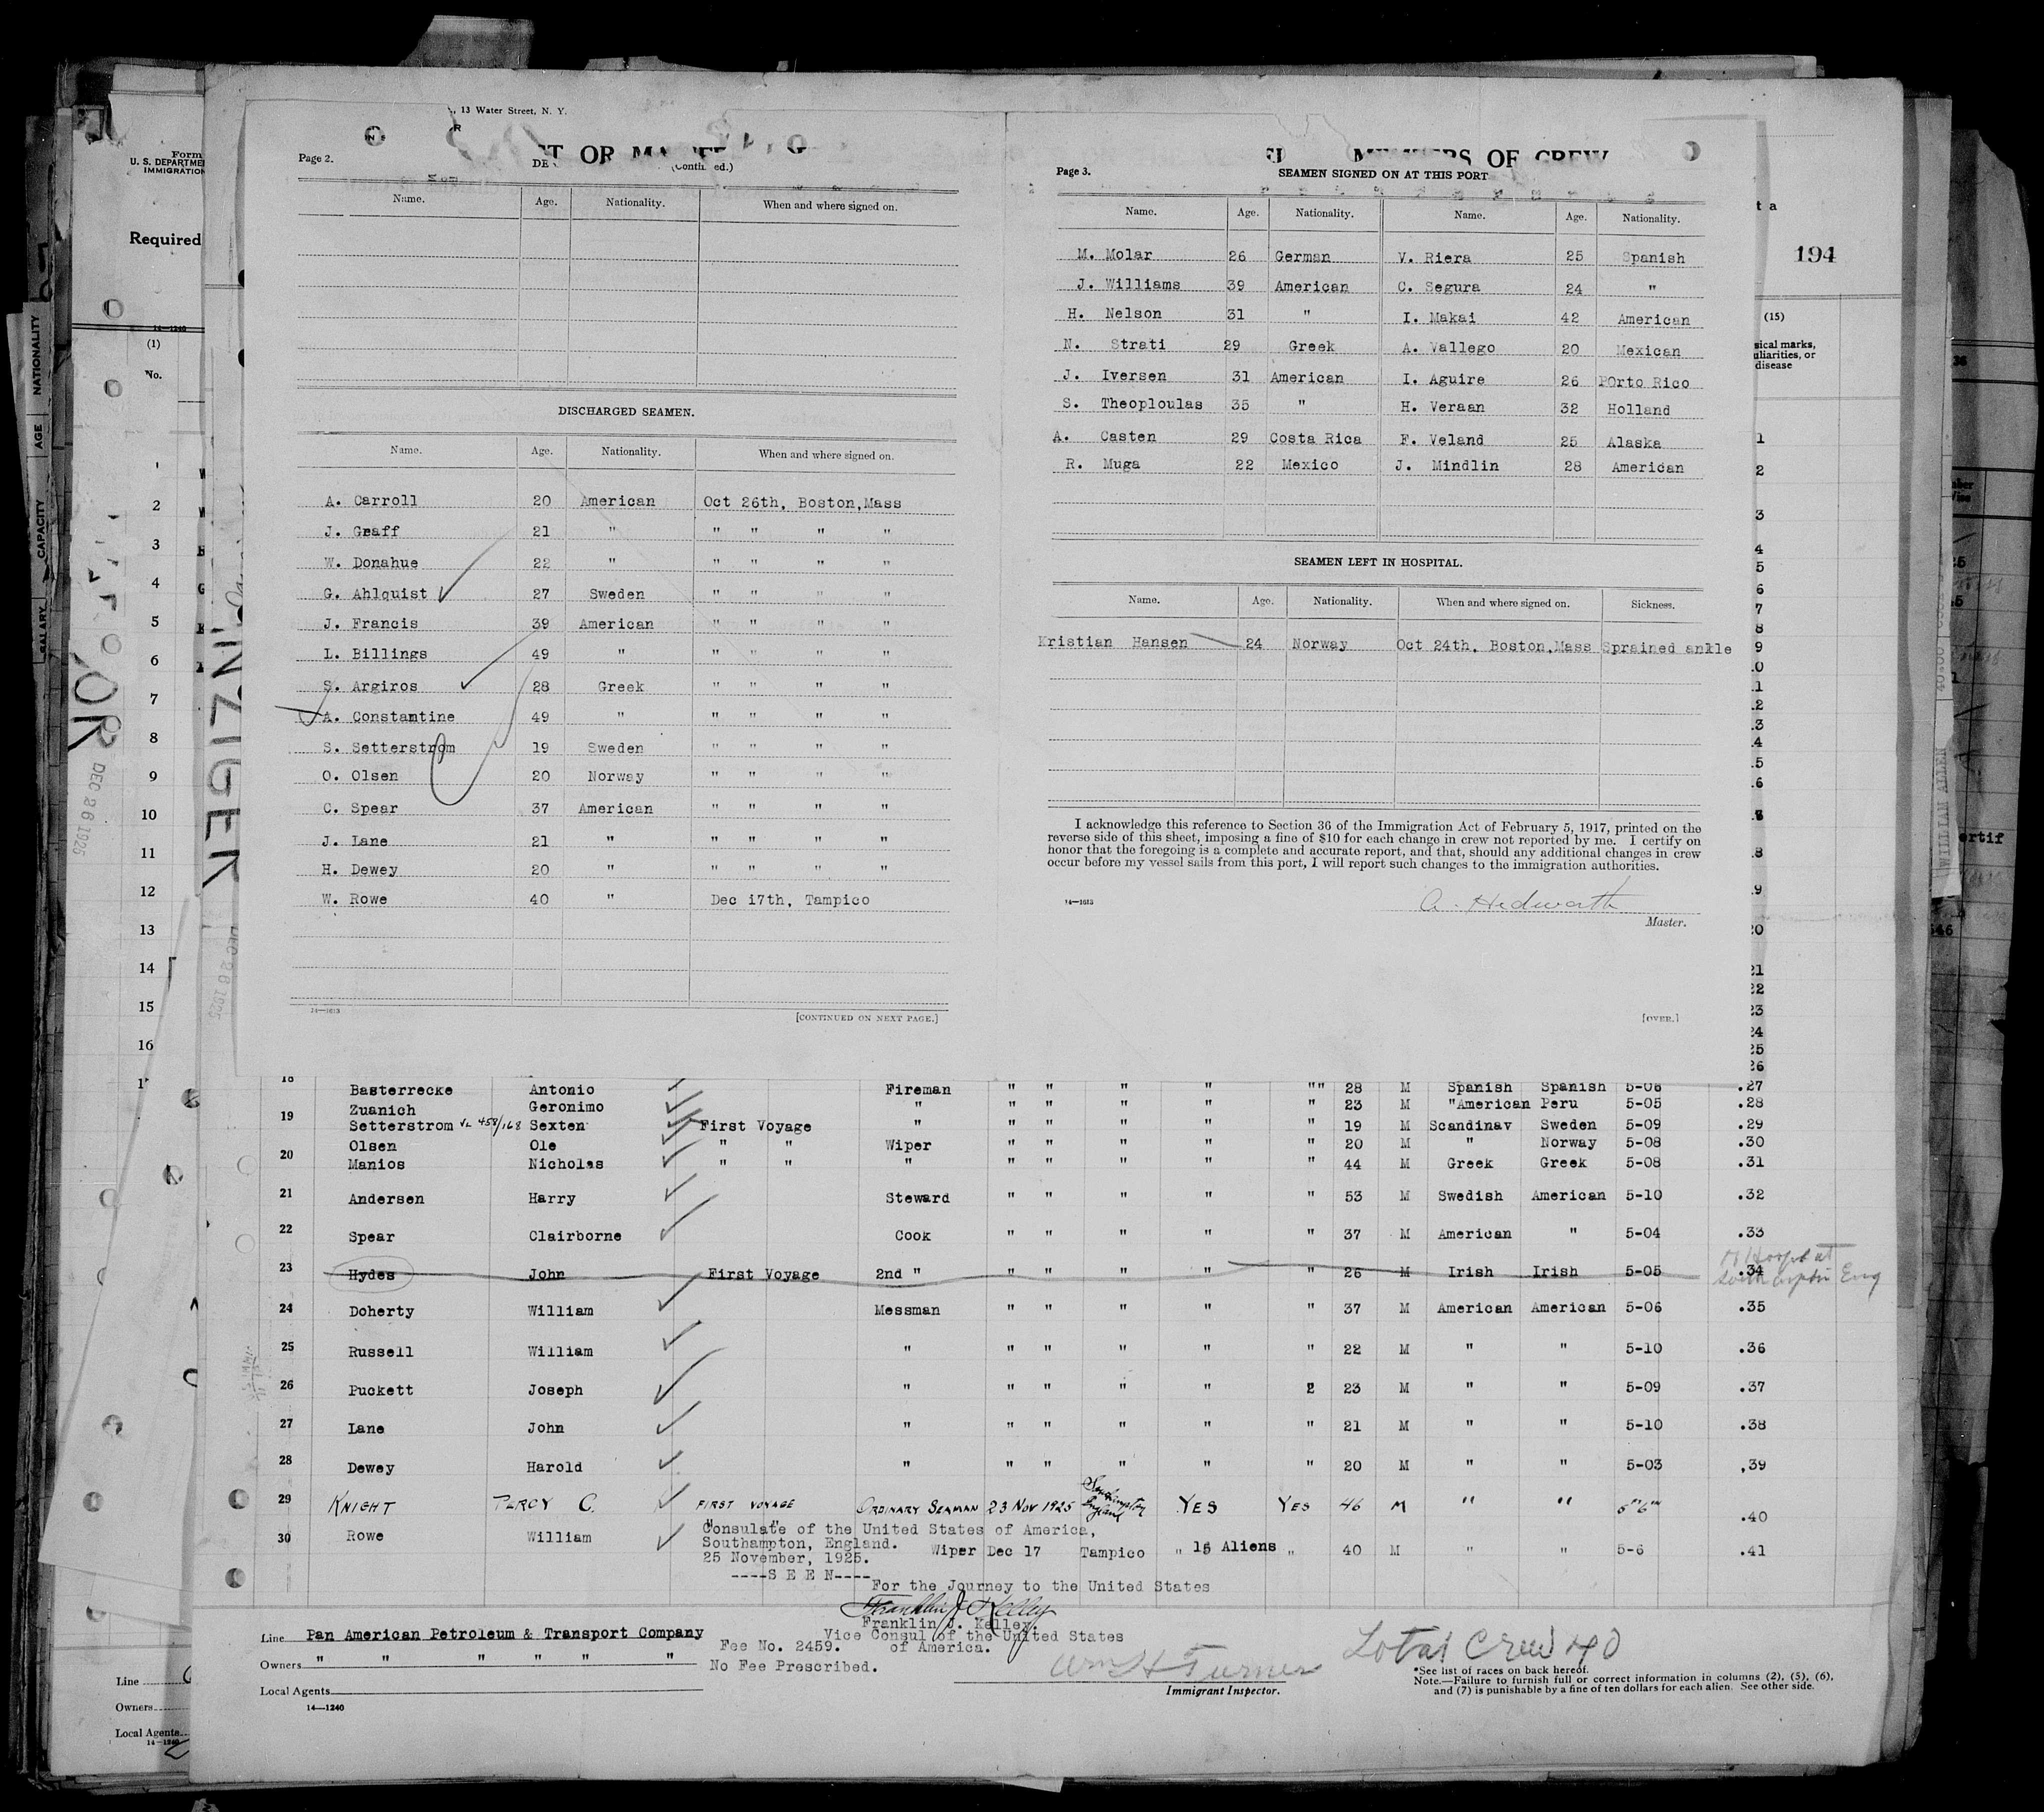 13 Water Street, N. Y.
Page 2.
(Contin ed.)
Name. Age. Nationality. When and where signed on.
DISCHARGED SEAMEN.
Name. Age. Nationality. When and where signed on.
A. Carroll 20 American Oct 26th, Boston,Mass
J. Graff 21 " " " " "
W. Donahue 22 " " " " "
G. Ahlquist 27 Sweden " " " "
J. Francis 39 American " " " "
L. Billings 49 " " " " "
S. Argiros 28 Greek " " " "
A. Constantine 49 " " " " "
S. Setterstrom 19 Sweden " " " "
O. Olsen 20 Norway " " " "
C. Spear 37 American " " " "
J. Lane 21 " " " " "
H. Dewey 20 " " " " "
W. Rowe 40 " Dec 17th, Tampico
14—1613
[CONTINUED ON NEXT PAGE.]
MEMBERS OF CREW
Page 3.
SEAMEN SIGNED ON AT THIS PORT
Name. Age. Nationality. Name. Age. Nationality.
M. Molar 26 German V. Riera 25 Spanish
J. Williams 39 American C. Segura 24 "
H. Nelson 31 " I. Makai 42 American
N. Strati 29 Greek A. Vallego 20 Mexican
J. Iversen 31 American I. Aguire 26 POrto Rico
S. Theoploulas 35 " H. Veraan 32 Holland
A. Casten 29 Costa Rica F. Veland 25 Alaska
R. Muga 22 Mexico J. Mindlin 28 American
SEAMEN LEFT IN HOSPITAL.
Name. Age. Nationality. When and where signed on. Sickness.
Kristian Hansen 24 Norway Oct 24th, Boston,Mass Sprained ankle
I acknowledge this reference to Section 36 of the Immigration Act of February 5, 1917, printed on the
reverse side of this sheet, imposing a fine of $10 for each change in crew not reported by me. I certify on
honor that the foregoing is a complete and accurate report, and that, should any additional changes in crew
occur before my vessel sails from this port, I will report such changes to the immigration authorities.
14—1613
A. Hedworth
Master.
[OVER.]
Form
U. S. DEPARTME
IMMIGRATION
Required
14—1240
(1)
No.
1
2
3
4
5
6
7
8
9
10
11
12
13
14
15
16
NATIONALITY
AGE
CAPACITY
SALARY
DEC 26 1925
INZIGER
DEC 26 1925
194
(15)
sical marks,
uliarities, or
disease
WILLIAM ALLEN
ertif
18 Basterrecke Antonio Fireman " " " " "" 28 M Spanish Spanish 5-06 .27
Zuanich Geronimo " " " " " " 23 M "American Peru 5-05 .28
19 Setterstrom VL 458/168 Sexten First Voyage " " " " " " 19 M Scandinav Sweden 5-09 .29
Olsen Ole " " Wiper " " " " " 20 M " Norway 5-08 .30
20 Manios Nicholas " " " " " " " " 44 M Greek Greek 5-08 .31
21 Andersen Harry Steward " " " " " 53 M Swedish American 5-10 .32
22 Spear Clairborne Cook " " " " " 37 M American " 5-04 .33
23 Hydes John First Voyage 2nd " " " " " " 26 M Irish Irish 5-05 .34
24 Doherty William Messman " " " " " 37 M American American 5-06 .35
25 Russell William " " " " " " 22 M " " 5-10 .36
26 Puckett Joseph " " " " " 2 23 M " " 5-09 .37
27 Lane John " " " " " " 21 M " " 5-10 .38
28 Dewey Harold " " " " " " 20 M " " 5-03 ,39
29 KNIGHT PERCY C. FIRST VOYAGE ORDINARY SEAMAN 23 NOV 1925 Southampton England YES YES 46 M " " 5'' 6'''' .40
30 Rowe William " " Wiper Dec 17 Tampico " " 40 M " " 5-6 .41
Consulate of the United States of America,
Southampton, England.
25 November, 1925.
15 Aliens
----S E E N----
For the Journey to the United States
Franklin J. Kelley
Franklin J. Kelley.
Vice Consul of the United States
of America.
Fee No. 2459.
No Fee Prescribed.
Line Pan American Petroleum & Transport Company
Owners " " " " " "
Local Agents
14—1240
Wm H Turner
Immigrant Inspector.
Total Crew 40
*See list of races on back hereof.
Note.—Failure to furnish full or correct information in columns (2), (5), (6),
and (7) is punishable by a fine of ten dollars for each alien. See other side.
Line
Owners
Local Agents
14—1240